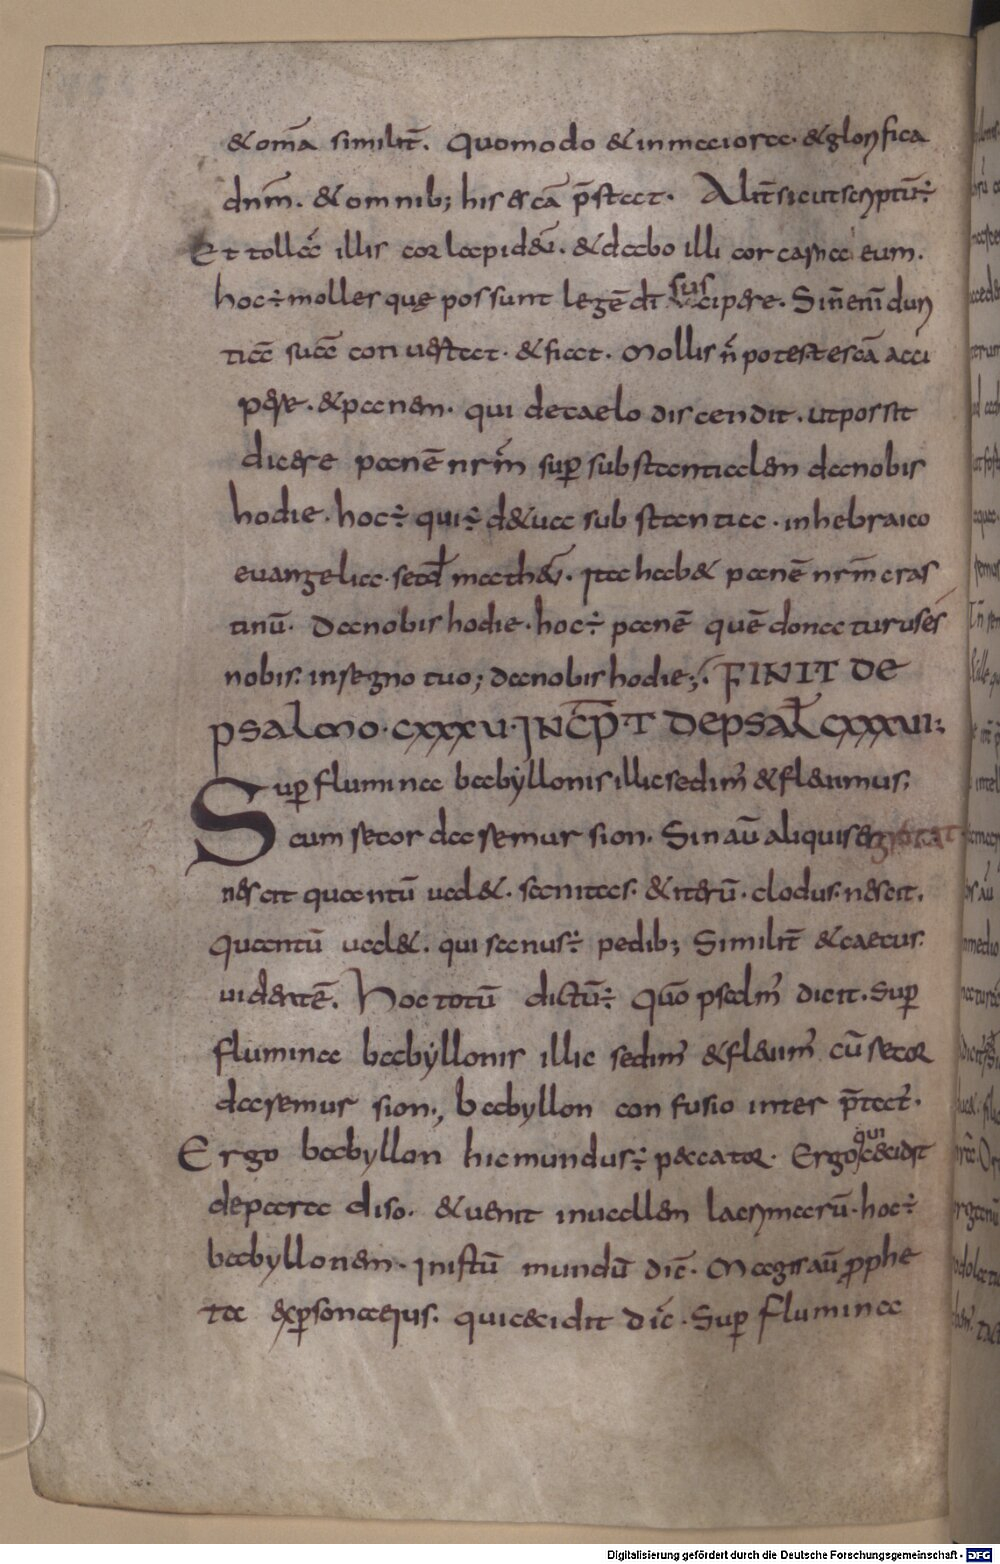 &om̄a similit̄. Quomodo &inmaiore· &glorifica
dn̄m. &omnib; his escā p̄stat· Alit̄ sicutscriptū÷
Et tollā illis cor lapideū. &dabo illi cor carneum.
hoc÷ molles quę possunt legē dī suscipere. Sin̄enī durı
tiā suā conuertat· &fiat. mollis n̄ potest escā acci
pere. &panem. qui decaelo discendit. utpossit
dicere panē nrm̄ sup substantialem danobis
hodie. hoc÷ qui÷ d&ua substantia· inhebraico
euangelia· secd matheū. Ita hab& panē nrm̄ cras
tinū. Danobis hodie· hoc÷ panē quē donaturuses
nobis in regno tuo; danobis hodie;. FINIT DE
psalmo· cxxxu· INCP̄T DEPSAL cxxxui:
Sup flumina babyllonis illic sedim̄ &fleuimus;
cum recordaremur sion. Sin aū aliquis egrotat
nescit quantū ual& sanitas. &iterū· clodus nescit.
Quantū ual&. qui sanus÷ pedib; Similit̄ &caecus
uidentē. Hoc totū dictū÷ Quo psalm̄ dicit. Sup
flumina babyllonis illic sedim̄ &fleuim̄ cū recor
daremur sion., babyllon confusio inter p̄tat̄·
Ergo babyllon hicmundus÷ peccator. Ergo qui cecidit
deparadiso. &uenit inuallem lacrimarū· hoc÷
babyllonem. Inistū mundū dic̄. magis aū prophe
ta expsona eius. quicecidit dic̄. Sup flumina
Digitalisierung gefördert durch die Deutsche Forschungsgemeinschaft - DFG